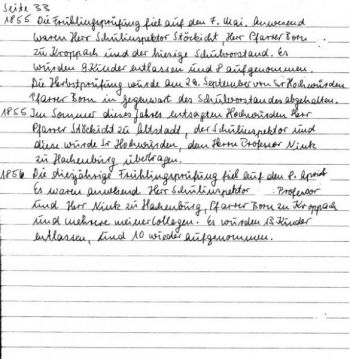 Seite 33
1855 Die Frühlingsprüfung fiel auf den 7. Mai. Anwesend
waren Herr Schulinspektor Stöckicht Herr Pfarrer Born
zu Kroppach und der hiesige Schulvorstand. Es
wurden 9 Kinder entlassen und 8 aufgenommen.
Die Herbstprüfung wurde am 29. September von Sr Hochwürden
Pfarrer Born in gegenwart des Schulvorstandes abgehalten.
1855 Im Sommer dieses Jahres entsagten Hochwürden Herr
Pfarrer Stöckicht zu Altstadt, der Schulinspektor und
diese wurde Sr Hochwürden, dem Herrn Professor Nink
zu Hachenburg übertragen.
1856 Die diesjährige Frühlingsprüfung fiel auf den 8. April
Es waren anwesend Herr Schulinspektor Professor
und Herr Nink zu Hachenburg, Pfarrer Born zu Kroppach
und mehrere meiner Collegen. Es wurden 13 Kinder
entlassen, und 10 wieder aufgenommen.